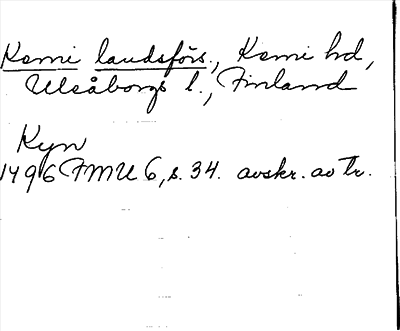 Kemi landsförs., Kemi hd,
Uleåborgs l., Finland
Kyn
1496 FMU 6, s. 34. avskr. av tr.